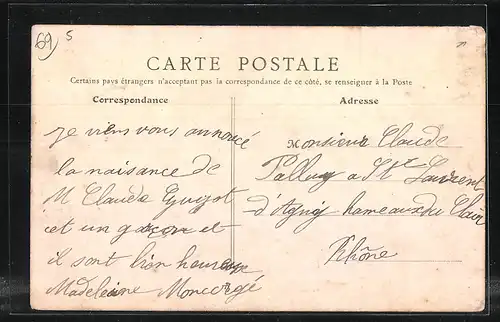 69
5
CARTE POSTALE
Certains pays étrangers n'acceptant pas la correspondance de ce côté, se renseigner à la Poste
Correspondance
je viens vous annoncé
la naisance de
M Claude Guyot
cet un garçon et
il sont bien heureux
Madeleine Moncorgé
Adresse
Monsieur Claude
Palluy a St Laurent
d'Agny hameaux du Clair
Rhône